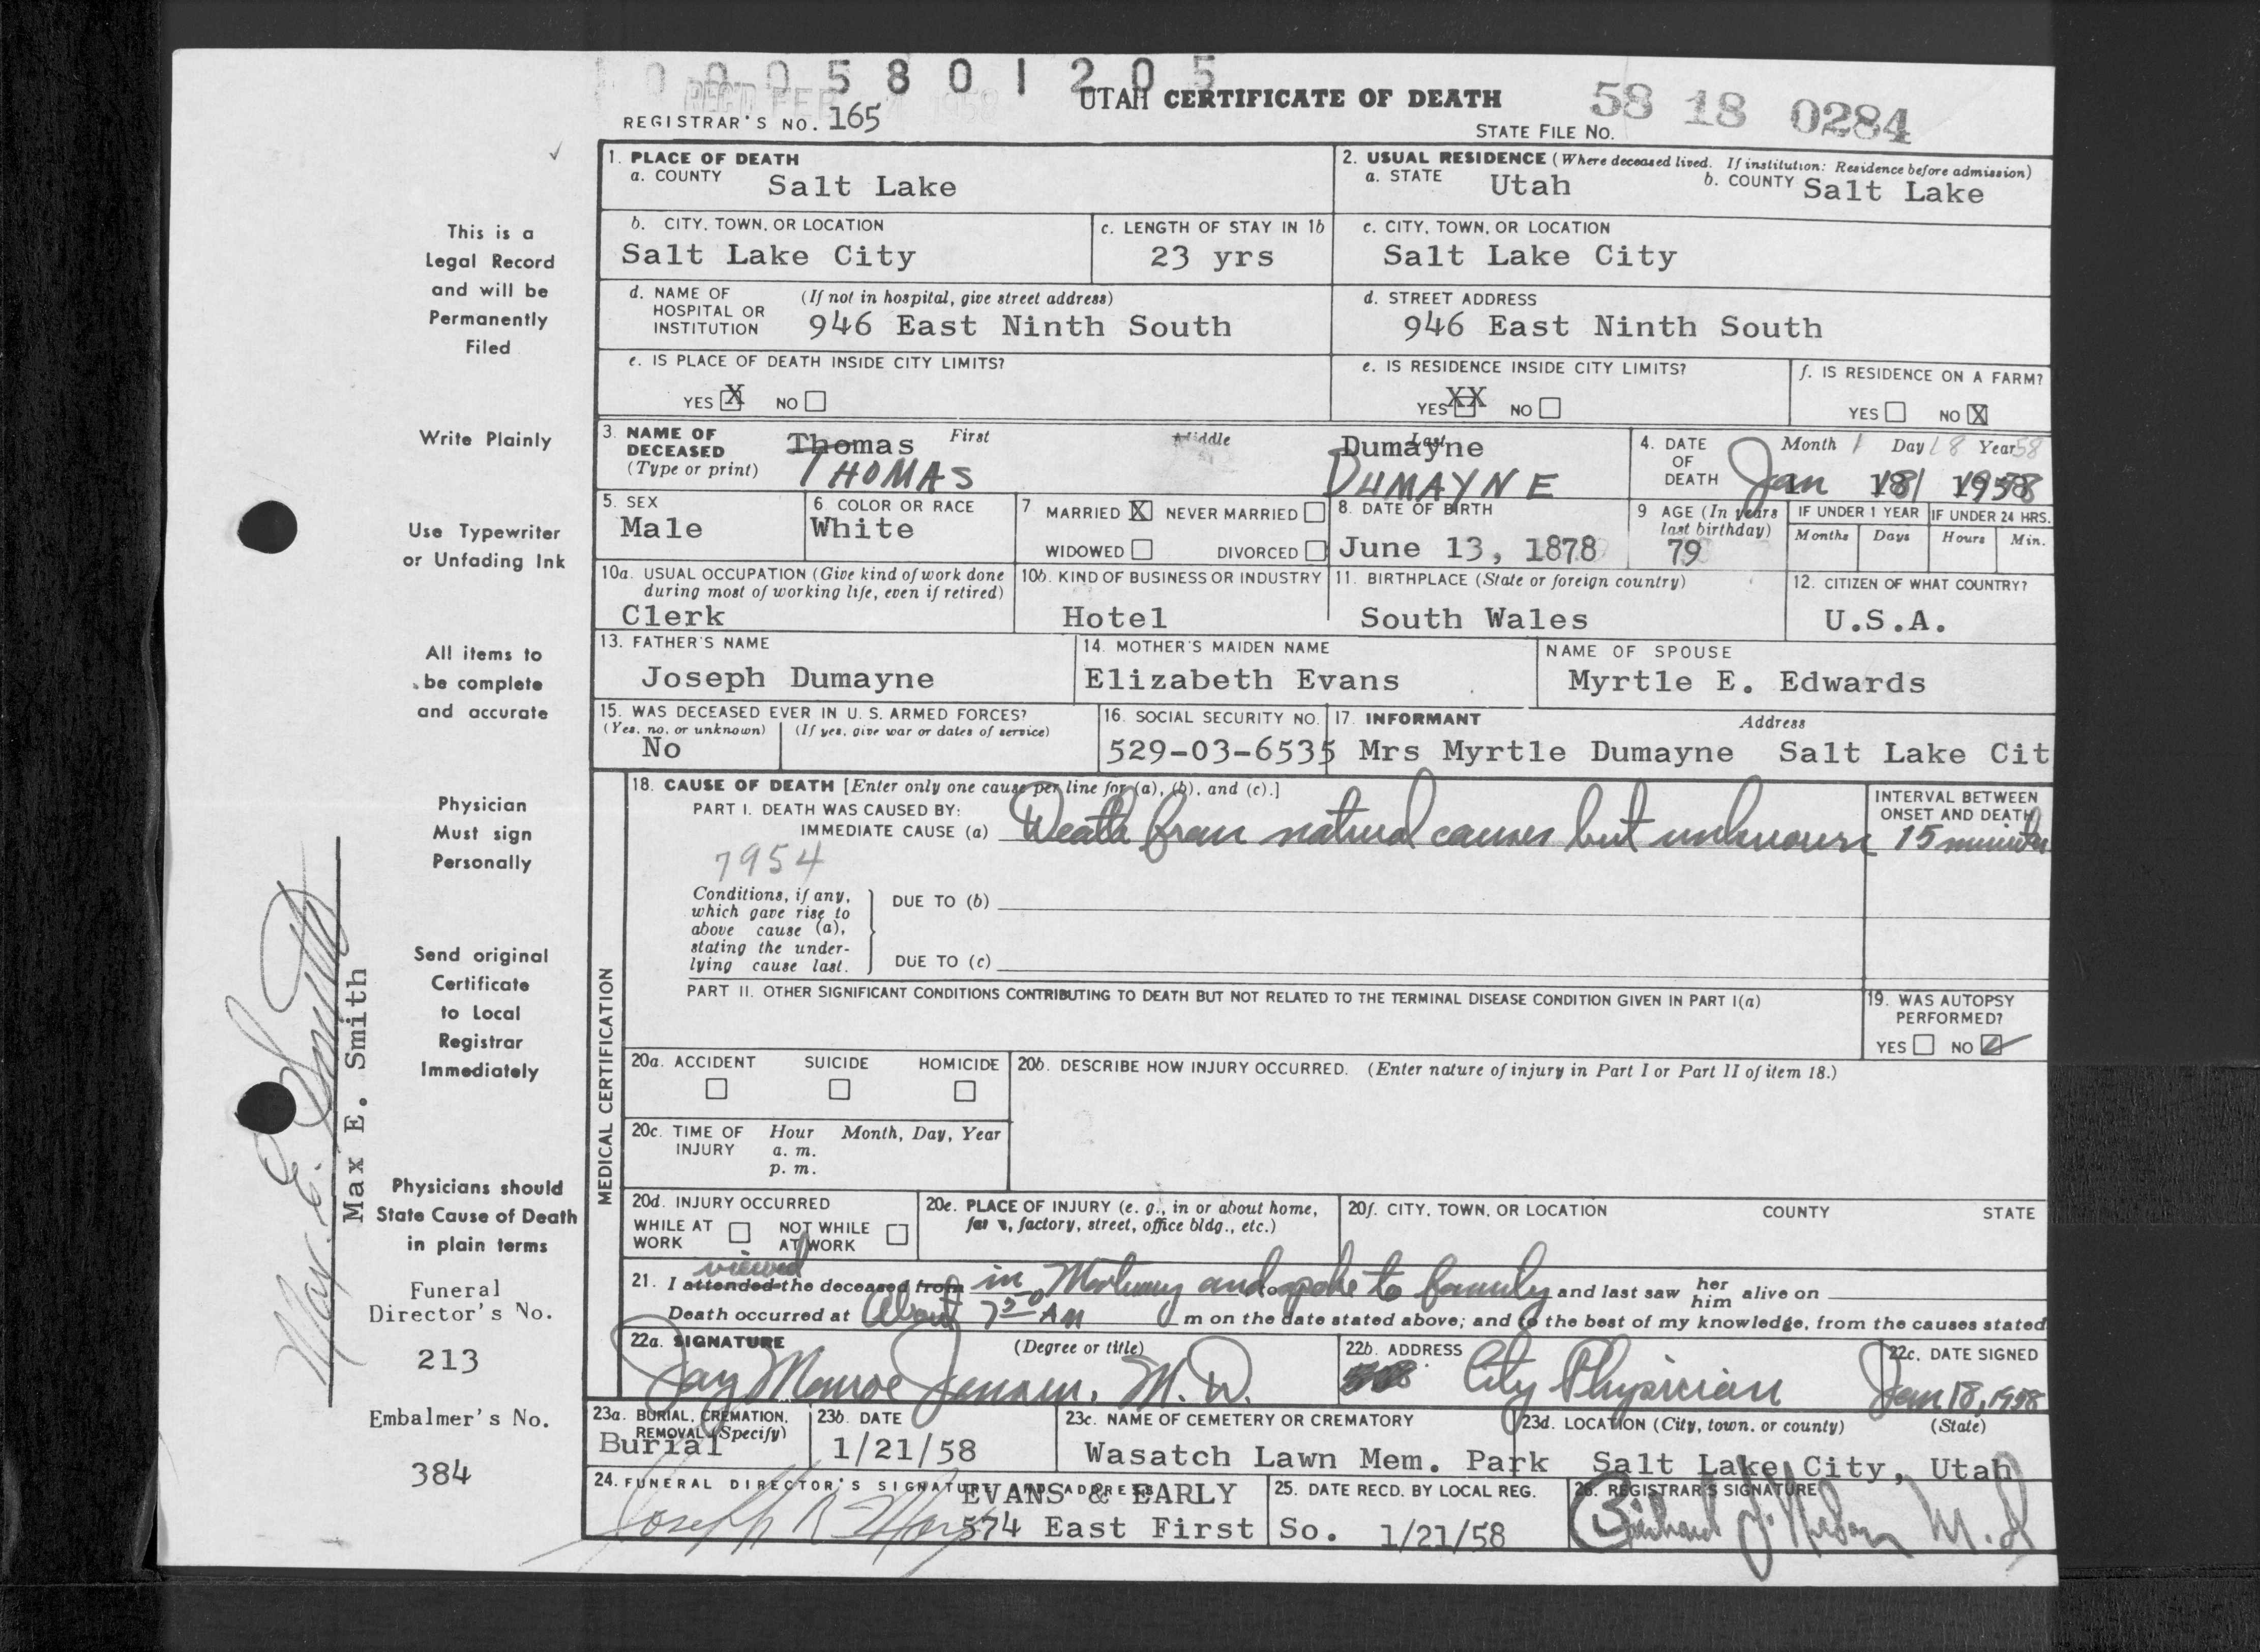 0 0 0 5 8 0 1 2 0 5
REC'D FEB 1958
UTAH CERTIFICATE OF DEATH
58 18 0284
REGISTRAR'S NO. 165
STATE FILE NO.
1. PLACE OF DEATH
a. COUNTY Salt Lake
2. USUAL RESIDENCE (Where deceased lived. If institution: Residence before admission)
a. STATE Utah b. COUNTY Salt Lake
b. CITY, TOWN, OR LOCATION
Salt Lake City
c. LENGTH OF STAY IN 1b
23 yrs
c. CITY, TOWN, OR LOCATION
Salt Lake City
d. NAME OF HOSPITAL OR INSTITUTION (If not in hospital, give street address)
946 East Ninth South
d. STREET ADDRESS
946 East Ninth South
e. IS PLACE OF DEATH INSIDE CITY LIMITS?
YES X NO
e. IS RESIDENCE INSIDE CITY LIMITS?
YES XX NO
f. IS RESIDENCE ON A FARM?
YES NO X
3. NAME OF DECEASED (Type or print)
First Middle Last
Thomas Dumayne
THOMAS DUMAYNE
4. DATE OF DEATH
Month 1 Day 18 Year 58
Jan 18 1958
5. SEX
Male
6. COLOR OR RACE
White
7. MARRIED X NEVER MARRIED
WIDOWED DIVORCED
8. DATE OF BIRTH
June 13, 1878
9 AGE (In years last birthday)
79
IF UNDER 1 YEAR
Months Days
IF UNDER 24 HRS.
Hours Min.
10a. USUAL OCCUPATION (Give kind of work done during most of working life, even if retired)
Clerk
10b. KIND OF BUSINESS OR INDUSTRY
Hotel
11. BIRTHPLACE (State or foreign country)
South Wales
12. CITIZEN OF WHAT COUNTRY?
U.S.A.
13. FATHER'S NAME
Joseph Dumayne
14. MOTHER'S MAIDEN NAME
Elizabeth Evans
NAME OF SPOUSE
Myrtle E. Edwards
15. WAS DECEASED EVER IN U. S. ARMED FORCES?
(Yes, no, or unknown) (If yes, give war or dates of service)
No
16. SOCIAL SECURITY NO.
529-03-6535
17. INFORMANT Address
Mrs Myrtle Dumayne Salt Lake Cit
MEDICAL CERTIFICATION
18. CAUSE OF DEATH [Enter only one cause per line for (a), (b), and (c).]
PART I. DEATH WAS CAUSED BY:
IMMEDIATE CAUSE (a) Death from natural causes but unknown
INTERVAL BETWEEN ONSET AND DEATH
15 minutes
7954
Conditions, if any, which gave rise to above cause (a), stating the underlying cause last.
DUE TO (b)
DUE TO (c)
PART II. OTHER SIGNIFICANT CONDITIONS CONTRIBUTING TO DEATH BUT NOT RELATED TO THE TERMINAL DISEASE CONDITION GIVEN IN PART I(a)
19. WAS AUTOPSY PERFORMED?
YES NO ✓
20a. ACCIDENT SUICIDE HOMICIDE
20b. DESCRIBE HOW INJURY OCCURRED. (Enter nature of injury in Part I or Part II of item 18.)
20c. TIME OF INJURY Hour Month, Day, Year
a. m.
p. m.
20d. INJURY OCCURRED
WHILE AT WORK NOT WHILE AT WORK
20e. PLACE OF INJURY (e. g., in or about home, farm, factory, street, office bldg., etc.)
20f. CITY, TOWN, OR LOCATION COUNTY STATE
viewed
21. I attended the deceased from in Mortuary and spoke to family and last saw her him alive on
Death occurred at About 7 50 AM m on the date stated above; and to the best of my knowledge, from the causes stated
22a. SIGNATURE (Degree or title)
Jay Monroe Jensen, M. D.
22b. ADDRESS
City Physician
22c. DATE SIGNED
Jan 18, 1958
23a. BURIAL, CREMATION, REMOVAL (Specify)
Burial
23b. DATE
1/21/58
23c. NAME OF CEMETERY OR CREMATORY
Wasatch Lawn Mem. Park
23d. LOCATION (City, town, or county) (State)
Salt Lake City, Utah
24. FUNERAL DIRECTOR'S SIGNATURE ADDRESS
EVANS & EARLY
574 East First So.
25. DATE RECD. BY LOCAL REG.
1/21/58
26. REGISTRAR'S SIGNATURE
M. D
This is a
Legal Record
and will be
Permanently
Filed
Write Plainly
Use Typewriter
or Unfading Ink
All items to
be complete
and accurate
Physician
Must sign
Personally
Send original
Certificate
to Local
Registrar
Immediately
Physicians should
State Cause of Death
in plain terms
Funeral
Director's No.
213
Embalmer's No.
384
Max E. Smith
Max E. Smith